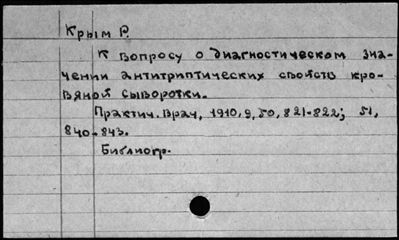 Крым Р.
К вопросу о диагностическом зна-
чении антитриптических свойств кро-
вяной сыворотки.
Практич. Врач, 1910, 9, 50, 821-822; 51,
840-843.
Библиогр.